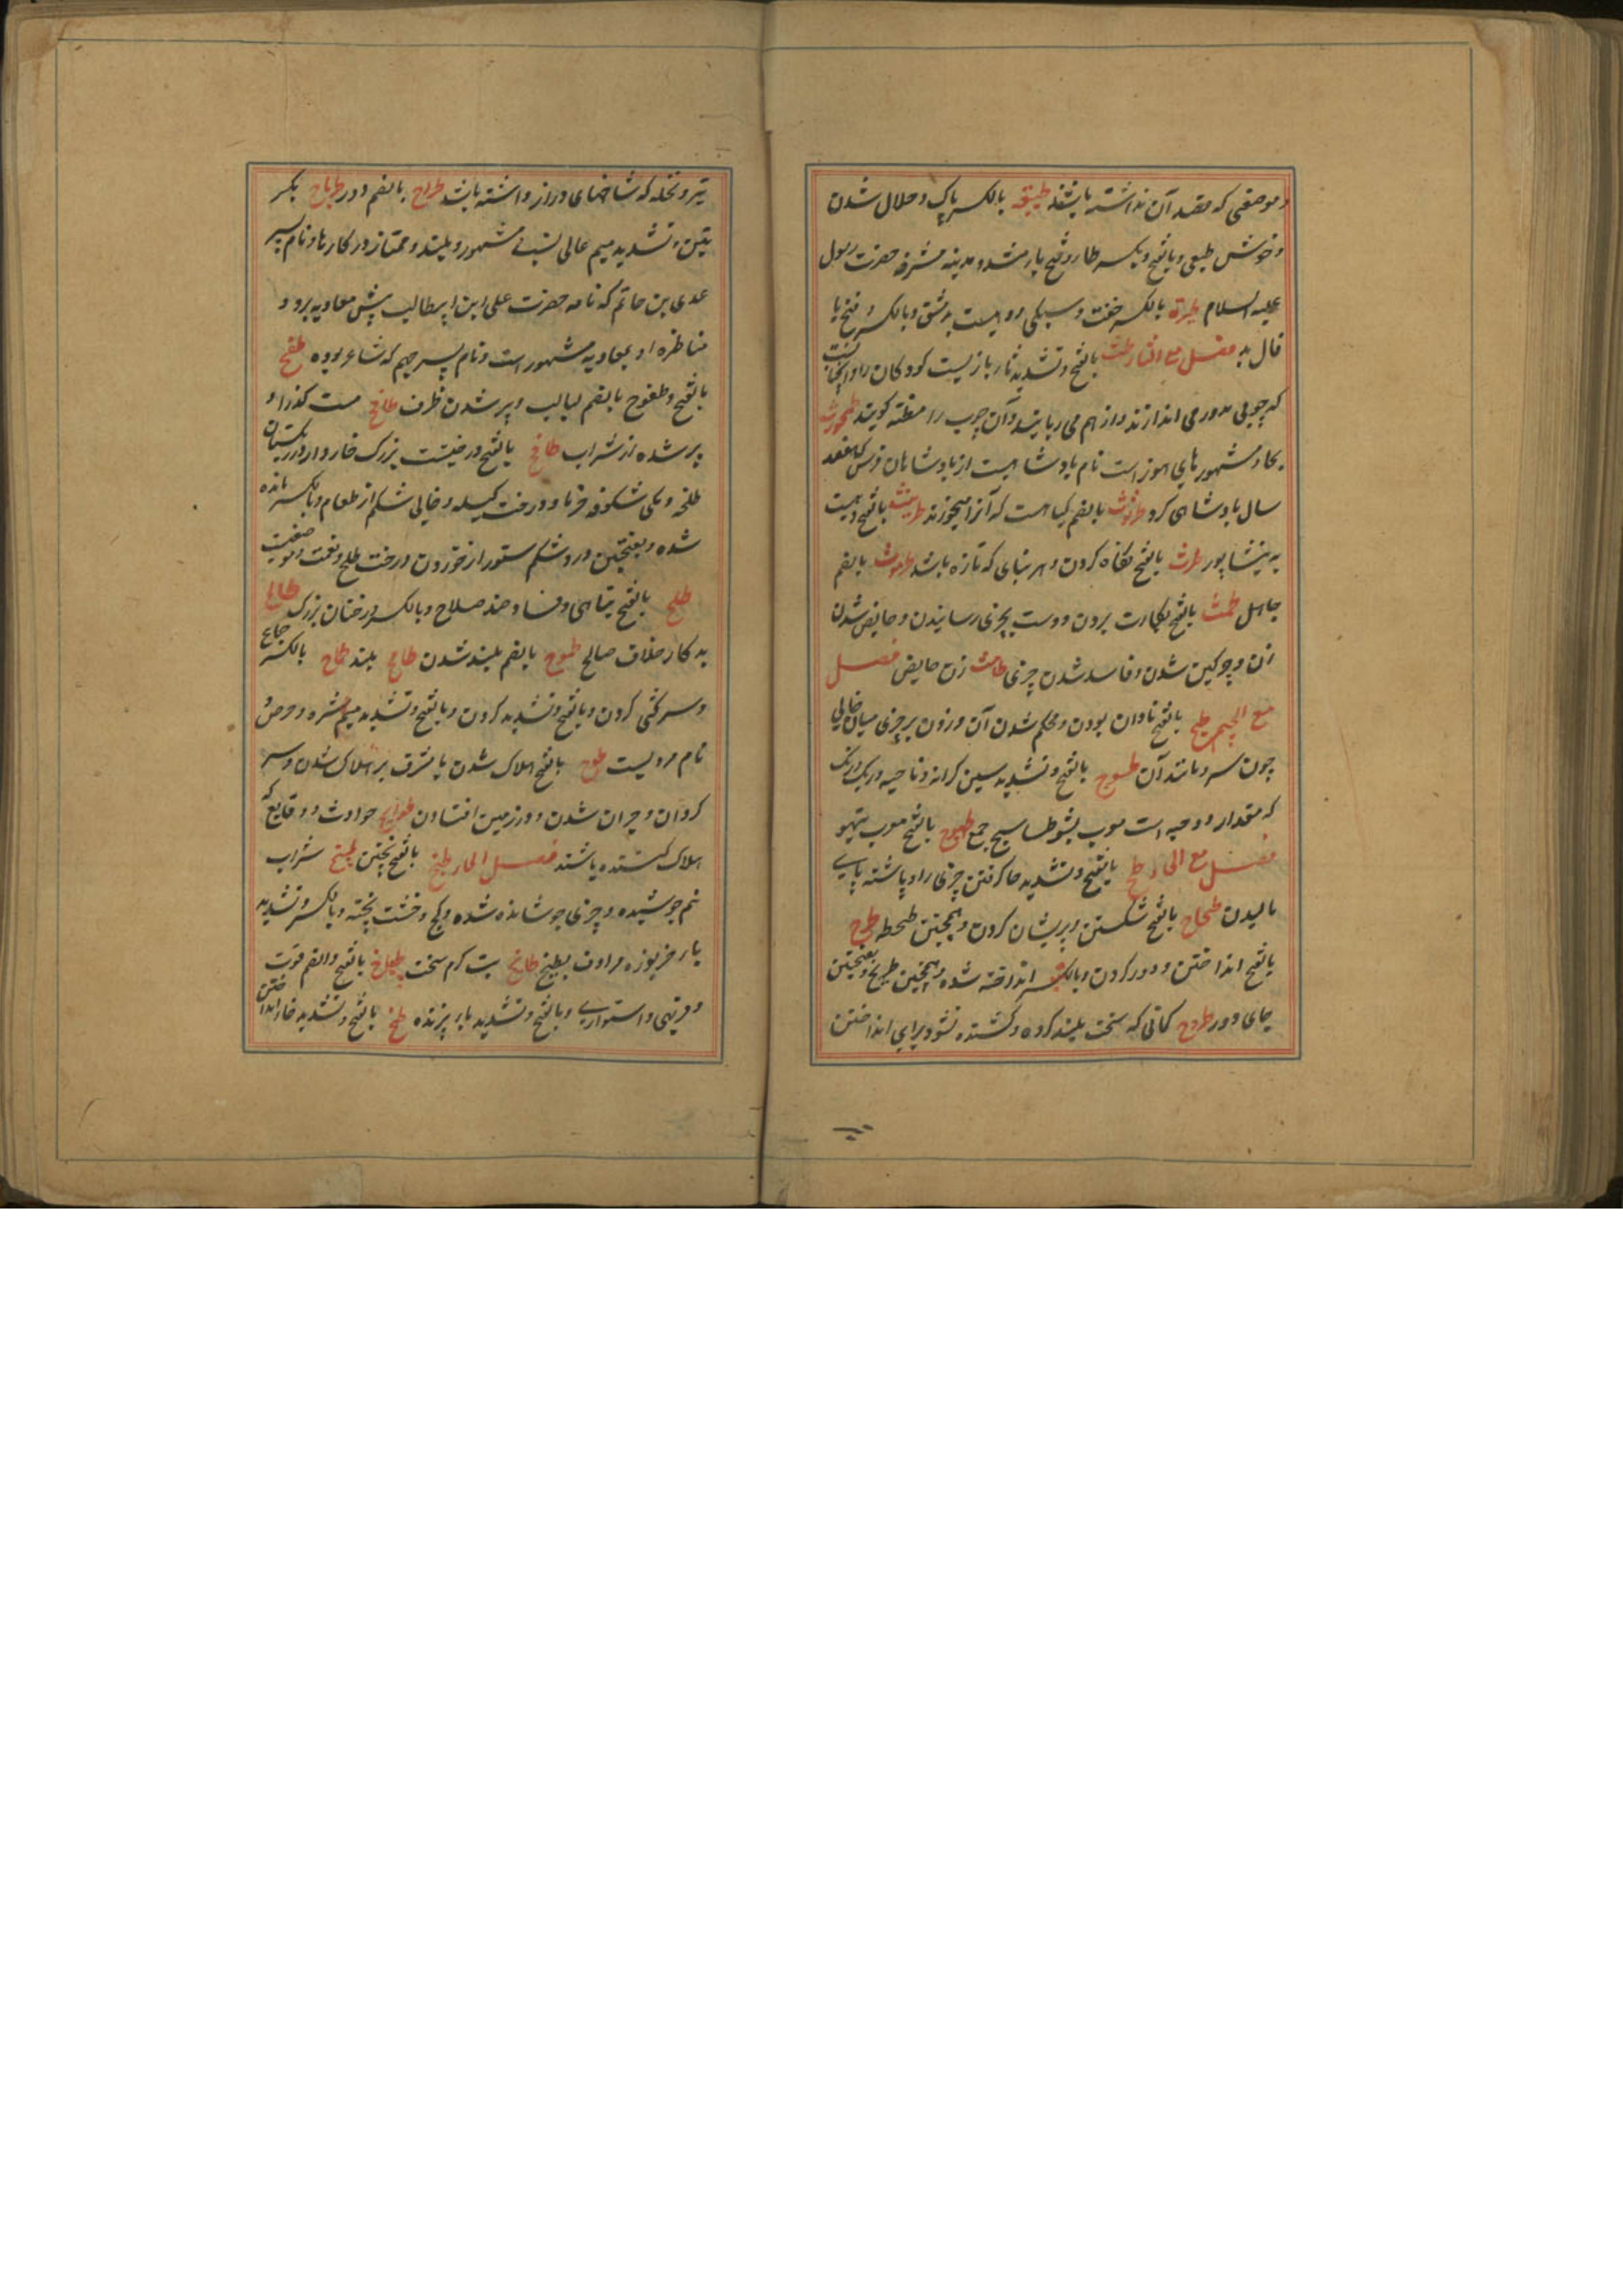 و موضعی که مقصد آن نداشته باشند طیبة بالکسر پاک و حلال شدن
و خوش طبعی و بالفتح و بکسر طا و فتح یا مشدد مدینه مشرفه حضرت رسول
علیه السلام طیرة بالکسر خفت و سبکی و دهیست بدمشق و بالکسر و فتح یا
فال بد فصل مع الثاء طث بالفتح و تشدید ثا بازیست کودکان را و آنچنانست
که چوبی مدور می اندازند و از هم می ربایند و آن چوب را مطثه گویند طهمورث
بحا و مشهور بهای هوز است نام پادشاهیست از پادشاهان فرس که هفصد
سال پادشاهی کرد طرثوث بالضم گیاهست که آنرا میخورند طریثیث بالفتح دهیست
به نیشاپور طرث بالفتح نگاه کردن و هر نباتی که تازه باشد طرموث بالضم
جاهل طمث بالفتح بکارت بردن و دست بچیزی رسانیدن و حایض شدن
زن و چرکین شدن و فاسد شدن چیزی طامث زن حایض فصل
مع الجیم طبج بالفتح نادان بودن و محکم شدن آن و زدن بر چیزی میان خالی
چون سر و مانند آن طسوج بالفتح و تشدید سین کرانه و ناحیه و ربع دانگ
که مقدار دو حبه است معرب تسو طساسیج جمع طیهوج بالفتح معرب تیهو
فصل مع الحاء طح بالفتح و تشدید حا گرفتن چیزی را و پاشنه پای
مالیدن طحطاح بالفتح شکستن و پریشان کردن و همچنین طحطحه طرح
بالفتح انداختن و دور کردن و بالکسر انداخته شده و همچنین طریح و بفتحتین
جای دور طروح کمانی که سخت بلند کرده و کشنده شود برای انداختن
تیر و نخله که شاخهای دراز داشته باشد طراح بالضم دور طرماح بکسر
تین و تشدید میم عالی نسب مشهور و بلند و ممتاز در کارها و نام پسر
عدی بن حاتم که نامه حضرت علی ابن ابیطالب پیش معاویه برد و
مناظره او بمعاویه مشهور است و نام پسر جهم که شاعر بوده طفح
بالفتح و طفوح بالضم لبالب و پر شدن ظرف طافح مست گذرا و
پر شده از شراب طلح بالفتح درختیست بزرگ خاردار در ریگستان
طلحه و یکی شکوفه خرما و درخت کیله و خالی شکم از طعام و بالکسر مانده
شده و بفتحتین درد شکم ستور از خوردن درخت طلح و نعمت و موضعیست
طلح بالفتح تباهی و فساد ضد صلاح و بالکسر درختان بزرگ طالح
بدکار خلاف صالح طموح بالضم بلند شدن طامح بلند طماح بالکسر جماح
و سرکشی کردن و بالفتح و تشدید کردن و بالفتح و تشدید میم شره و حرص و
نام مردیست طوح بالفتح هلاک شدن یا مشرف بر هلاک شدن و سر
گردان و حیران شدن و در زمین افتادن طوایح حوادث و وقایع که
هلاک کننده باشند فصل الخاء طبخ بالفتح پختن طبیخ شراب
نیم جوشیده و چیزی جوشانده شده و گچ و خشت پخته و بالکسر و تشدید
با خربوزه مرادف بطیخ طابخ تب گرم سخت طباخ بالفتح و الضم قوت
و فربهی و استواری و بالفتح و تشدید با پزنده طخ بالفتح و تشدید خا انداختن